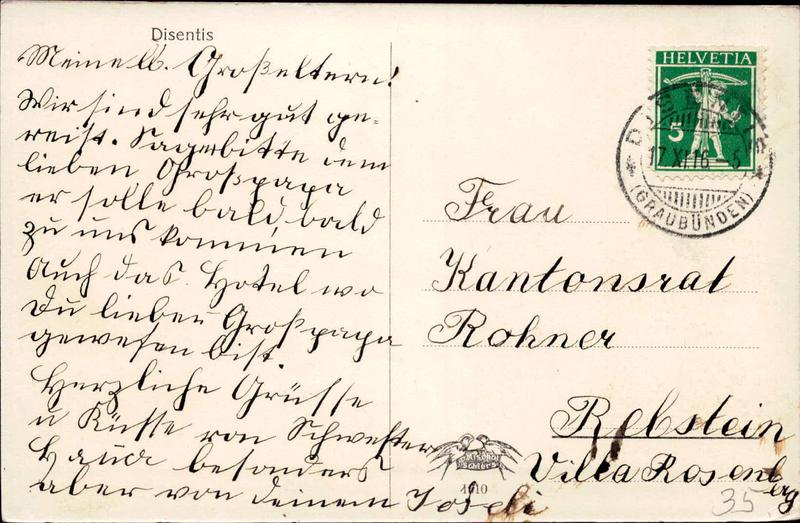 Disentis
Meine lb. Großeltern!
Wir sind sehr gut ge-
reist. Sage bitte dem
lieben Großpapa
er solle bald bald
zu uns kommen
Auch das Hotel wo
Du lieber Großpapa
gewesen bist.
Herzliche Grüsse
u Küsse von Schwester
besonders
aber von deinem Joseli
HELVETIA
5
17.XI.16.–5
(GRAUBÜNDEN)
Frau
Kantonsrat
Rohner
Rebstein
Villa Rosenberg
1910
35